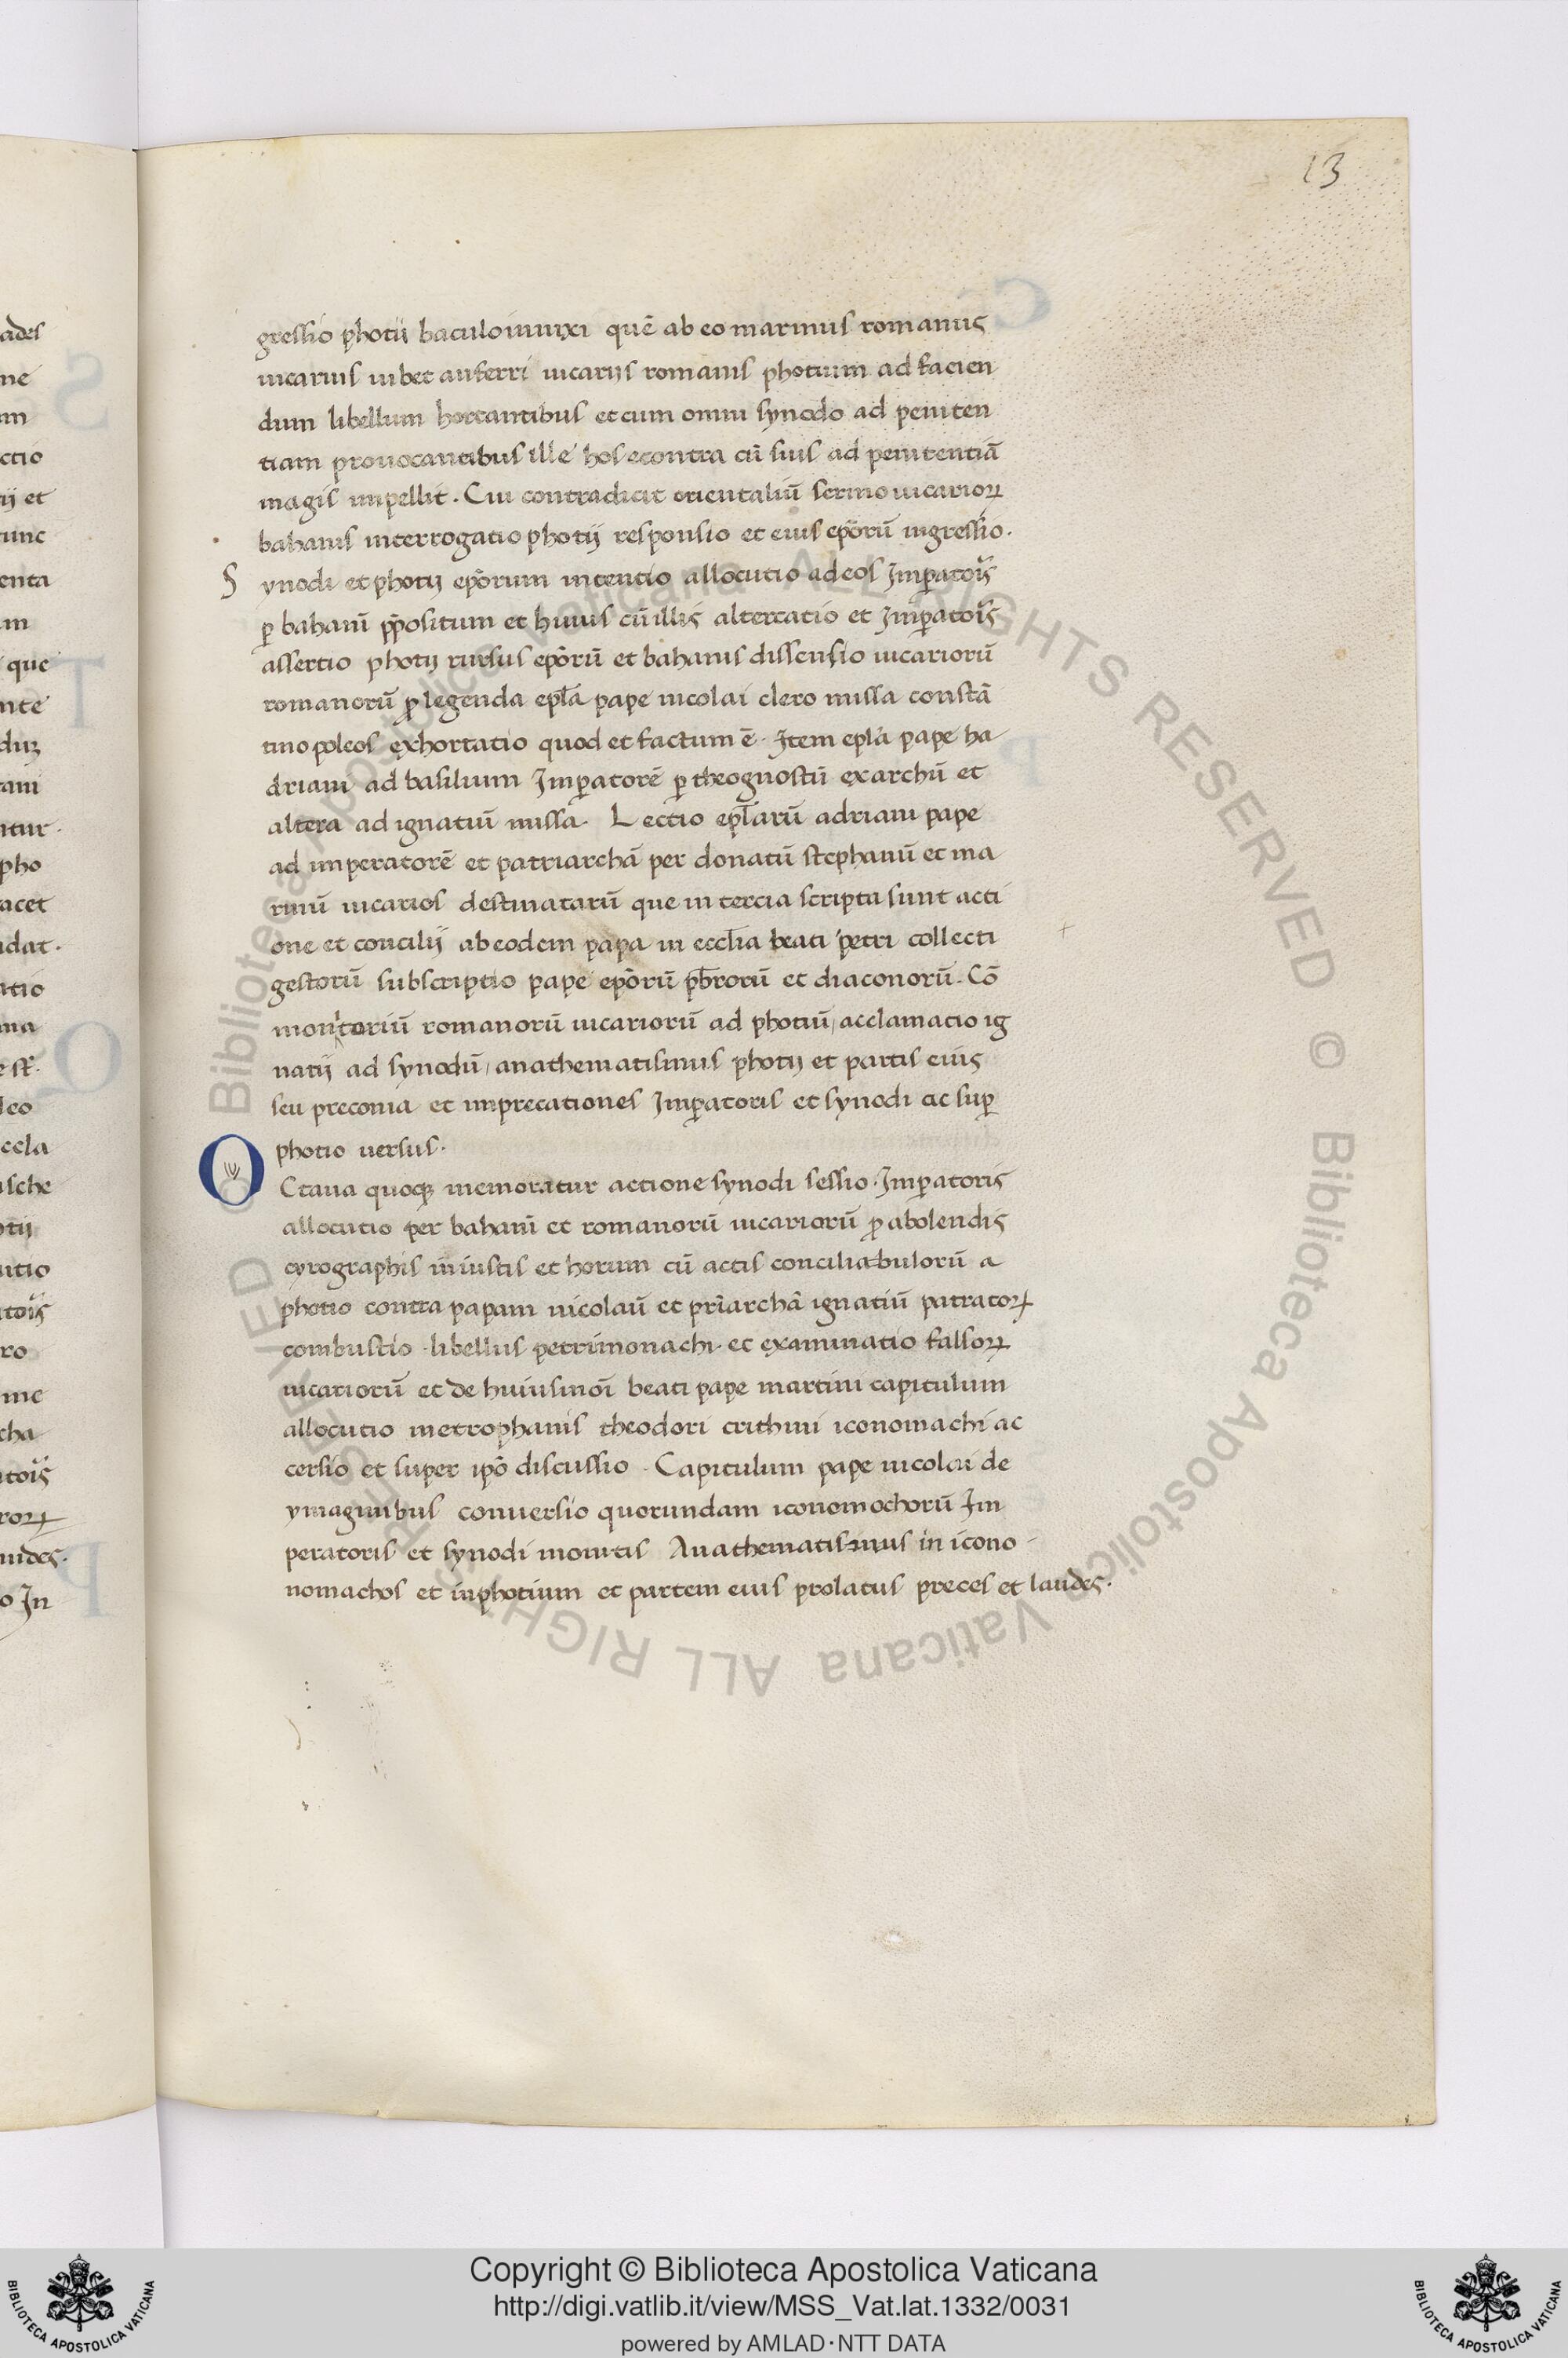 13
gressio photii baculo innixi quē ab eo marinus romanus
uicarius iubet auferri uicariis romanis photium ad facien
dum libellum hortantibus et cum omni synodo ad peniten
tiam prouocantibus ille hos econtra cū suis ad penitentiā
magis impellit. Cui contradicit orientaliū sermo uicarioꝝ
bahanis interrogatio photij responsio et eius epōrū ingressio.
S ynodi et photij epōrum intentio allocutio ad eos Imꝑatoris
ꝑ bahanī ppositum et huius cū illis altercatio et Imꝑatoris
assertio photij rursus epōrū et bahanis dissensio uicariorū
romanorū ꝓ legenda epl̄a pape nicolai clero missa constā
tinopoleos exhortatio quod et factum ē. Item epl̄a pape ha
driani ad basilium Imꝑatorē ꝑ theognostū exarchū et
altera ad ignatiū missa. Lectio epl̄arū adriani pape
ad imperatorē et patriarchā per donatū stephanū et ma
rinū uicarios destinatarū que in tercia scripta sunt acti
one et concilij ab eodem papa in eccl̄ia beati petri collecti
gestorū subscriptio pape epōrū pb̄rorū et diaconorū. Cō
monitoriū romanorū uicariorū ad photiū, acclamatio ig
natij ad synodū, anathematismus photij et partis eius
seu preconia et imprecationes Imꝑatoris et synodi ac suꝑ
photio uersus.
O Ctaua quoqꝫ memoratur actione synodi sessio. Imꝑatoris
allocutio per bahanī et romanorū uicariorū ꝓ abolendis
cyrographis iniustis et horum cū actis conciliabulorū a
photio contra papam nicolaū et pr̄iarchā ignatiū patratoꝝ
combustio. libellus petri monachi. et examinatio falsoꝝ
uicariorū et de huiusmōi beati pape martini capitulum
allocutio metrophanis theodori crithini iconomachi ac
cersio et super ipō discussio. Capitulum pape nicolai de
ymaginibus conuersio quorundam iconomochorū Im
peratoris et synodi monitis Anathematismus in icono-
nomachos et in photium et partem eius prolatus preces et laudes.
Copyright © Biblioteca Apostolica Vaticana
http://digi.vatlib.it/view/MSS_Vat.lat.1332/0031
powered by AMLAD·NTT DATA